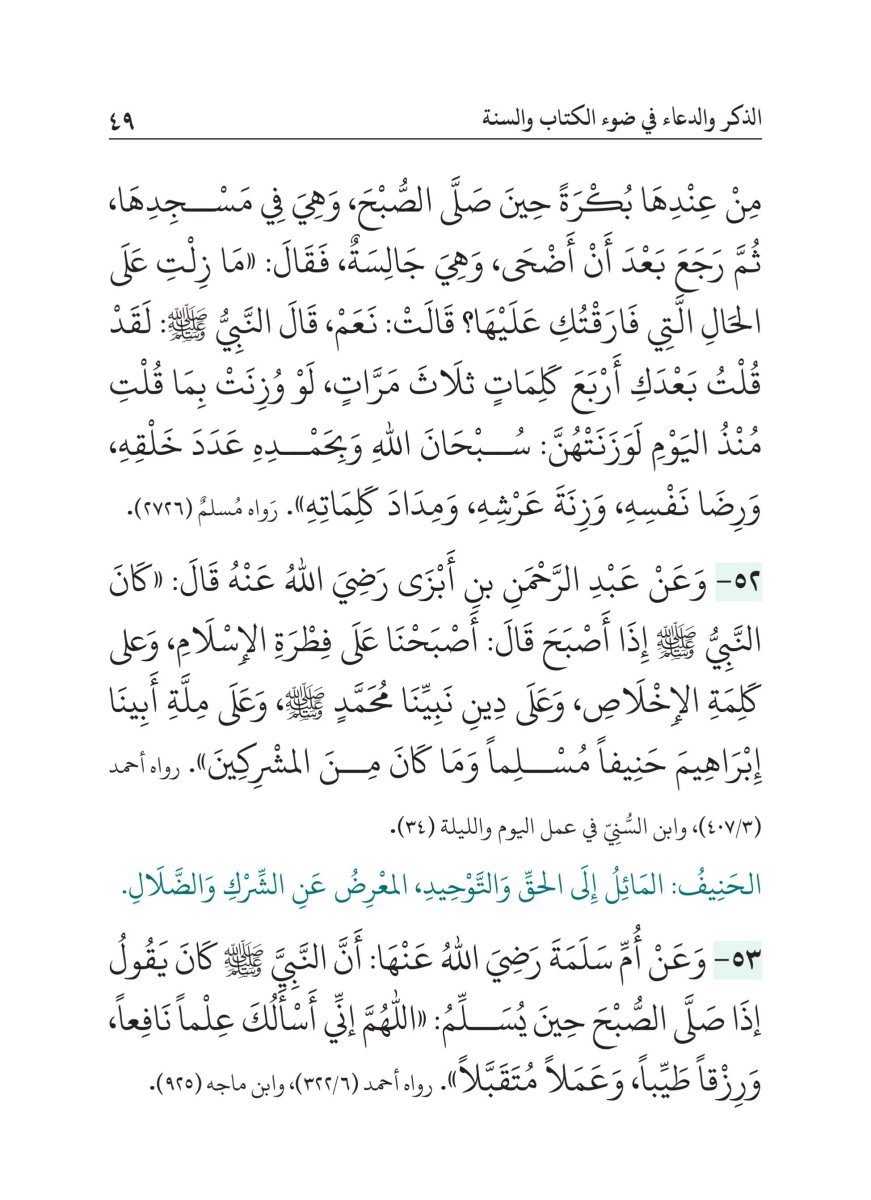 الذكر والدعاء في ضوء الكتاب والسنة ٤٩
مِنْ عِنْدِهَا بُكْرَةً حِينَ صَلَّى الصُّبْحَ، وَهِيَ فِي مَسْـجِدِهَا،
ثُمَّ رَجَعَ بَعْدَ أَنْ أَضْحَى، وَهِيَ جَالِسَةٌ، فَقَالَ: «مَا زِلْتِ عَلَى
الحَالِ الَّتِي فَارَقْتُكِ عَلَيْهَا؟ قَالَتْ: نَعَمْ، قَالَ النَّبِيُّ ﷺ: لَقَدْ
قُلْتُ بَعْدَكِ أَرْبَعَ كَلِمَاتٍ ثلَاثَ مَرَّاتٍ، لَوْ وُزِنَتْ بِمَا قُلْتِ
مُنْذُ اليَوْمِ لَوَزَنَتْهُنَّ: سُـبْحَانَ اللهِ وَبِحَمْـدِهِ عَدَدَ خَلْقِهِ،
وَرِضَا نَفْسِهِ، وَزِنَةَ عَرْشِهِ، وَمِدَادَ كَلِمَاتِهِ». رَواه مُسلمٌ (٢٧٢٦).
٥٢- وَعَنْ عَبْدِ الرَّحْمَنِ بنِ أَبْزَى رَضِيَ اللهُ عَنْهُ قَالَ: «كَانَ
النَّبِيُّ ﷺ إِذَا أَصْبَحَ قَالَ: أَصْبَحْنَا عَلَى فِطْرَةِ الإِسْلَامِ، وَعلى
كَلِمَةِ الإِخْلَاصِ، وَعَلَى دِينِ نَبِيِّنَا مُحَمَّدٍ ﷺ، وَعَلَى مِلَّةِ أَبِينَا
إِبْرَاهِيمَ حَنِيفاً مُسْـلِماً وَمَا كَانَ مِـنَ المشْرِكِينَ». رواه أحمد
(٤٠٧/٣)، وابن السُّنِيّ في عمل اليوم والليلة (٣٤).
الحَنِيفُ: المَائِلُ إِلَى الحقِّ وَالتَّوْحِيدِ، المعْرِضُ عَنِ الشِّرْكِ وَالضَّلَالِ.
٥٣- وَعَنْ أُمِّ سَلَمَةَ رَضِيَ اللهُ عَنْهَا: أَنَّ النَّبِيَّ ﷺ كَانَ يَقُولُ
إِذَا صَلَّى الصُّبْحَ حِينَ يُسَـلِّمُ: «اللَّهُمَّ إِنِّي أَسْأَلُكَ عِلْماً نَافِعاً،
وَرِزْقاً طَيِّباً، وَعَمَلاً مُتَقَبَّلاً». رواه أحمد (٣٢٢/٦)، وابن ماجه (٩٢٥).